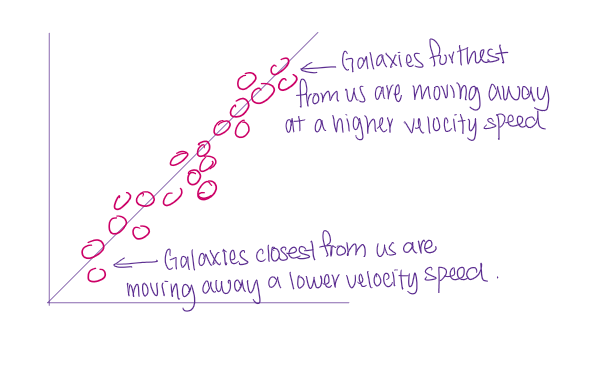 Galaxies furthest
from us are moving away
at a higher velocity speed
Galaxies closest from us are
moving away a lower velocity speed.